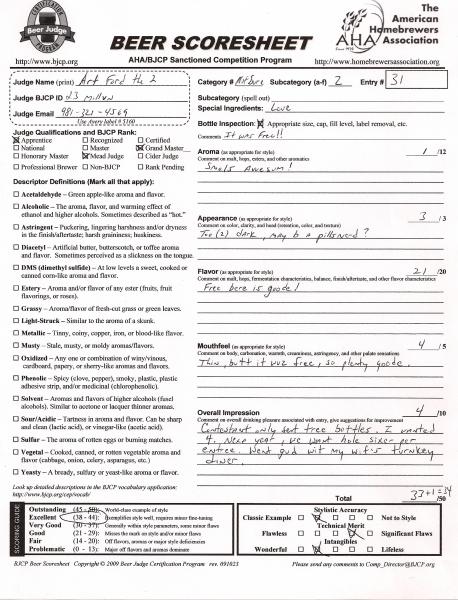 CERTIFICATION
Beer Judge
PROGRAM
BEER SCORESHEET
AHA/BJCP Sanctioned Competition Program
AHA
Since 1978
The
American
Homebrewers
Association
http://www.bjcp.org
http://www.homebrewersassociation.org
Judge Name (print) Art Ford the 2
Judge BJCP ID
Judge Email 981-321-4569
Use Avery label # 5160
Category # Subcategory (a-f) 2 Entry # 31
Subcategory (spell out)
Special Ingredients: Love
Bottle Inspection: Appropriate size, cap, fill level, label removal, etc.
Comments It was Free!!
Judge Qualifications and BJCP Rank:
Apprentice Recognized Certified
National Master Grand Master
Honorary Master Mead Judge Cider Judge
Professional Brewer Non-BJCP Rank Pending
Descriptor Definitions (Mark all that apply):
Acetaldehyde – Green apple-like aroma and flavor.
Alcoholic – The aroma, flavor, and warming effect of
ethanol and higher alcohols. Sometimes described as "hot."
Astringent – Puckering, lingering harshness and/or dryness
in the finish/aftertaste; harsh graininess; huskiness.
Diacetyl – Artificial butter, butterscotch, or toffee aroma
and flavor. Sometimes perceived as a slickness on the tongue.
DMS (dimethyl sulfide) – At low levels a sweet, cooked or
canned corn-like aroma and flavor.
Estery – Aroma and/or flavor of any ester (fruits, fruit
flavorings, or roses).
Grassy – Aroma/flavor of fresh-cut grass or green leaves.
Light-Struck – Similar to the aroma of a skunk.
Metallic – Tinny, coiny, copper, iron, or blood-like flavor.
Musty – Stale, musty, or moldy aromas/flavors.
Oxidized – Any one or combination of winy/vinous,
cardboard, papery, or sherry-like aromas and flavors.
Phenolic – Spicy (clove, pepper), smoky, plastic, plastic
adhesive strip, and/or medicinal (chlorophenolic).
Solvent – Aromas and flavors of higher alcohols (fusel
alcohols). Similar to acetone or lacquer thinner aromas.
Sour/Acidic – Tartness in aroma and flavor. Can be sharp
and clean (lactic acid), or vinegar-like (acetic acid).
Sulfur – The aroma of rotten eggs or burning matches.
Vegetal – Cooked, canned, or rotten vegetable aroma and
flavor (cabbage, onion, celery, asparagus, etc.)
Yeasty – A bready, sulfury or yeast-like aroma or flavor.
Look up detailed descriptions in the BJCP vocabulary application:
http://www.bjcp.org/cep/vocab/
Aroma (as appropriate for style) 1 /12
Comment on malt, hops, esters, and other aromatics
Smels Awesum!
Appearance (as appropriate for style) 3 /3
Comment on color, clarity, and head (retention, color, and texture)
Too (2) dark, may b a pillsnerd?
Flavor (as appropriate for style) 21 /20
Comment on malt, hops, fermentation characteristics, balance, finish/aftertaste, and other flavor characteristics
Free bere is goode!
Mouthfeel (as appropriate for style) 4 /5
Comment on body, carbonation, warmth, creaminess, astringency, and other palate sensations
Thin, butt it wuz free, so plenty goode.
Overall Impression 4 /10
Comment on overall drinking pleasure associated with entry, give suggestions for improvement
Contestant only sent free bottles. I wanted
4. Nexe year, we want hole sixer per
entree. Went gud wit my wif's turnkey
diner.
Total 33+1=34 /50
SCORING GUIDE
Outstanding (45 - 50): World-class example of style
Excellent (38 - 44): Exemplifies style well, requires minor fine-tuning
Very Good (30 - 37): Generally within style parameters, some minor flaws
Good (21 - 29): Misses the mark on style and/or minor flaws
Fair (14 - 20): Off flavors, aromas or major style deficiencies
Problematic (0 - 13): Major off flavors and aromas dominate
Stylistic Accuracy
Classic Example Not to Style
Technical Merit
Flawless Significant Flaws
Intangibles
Wonderful Lifeless
BJCP Beer Scoresheet Copyright © 2009 Beer Judge Certification Program rev. 091023
Please send any comments to Comp_Director@BJCP.org